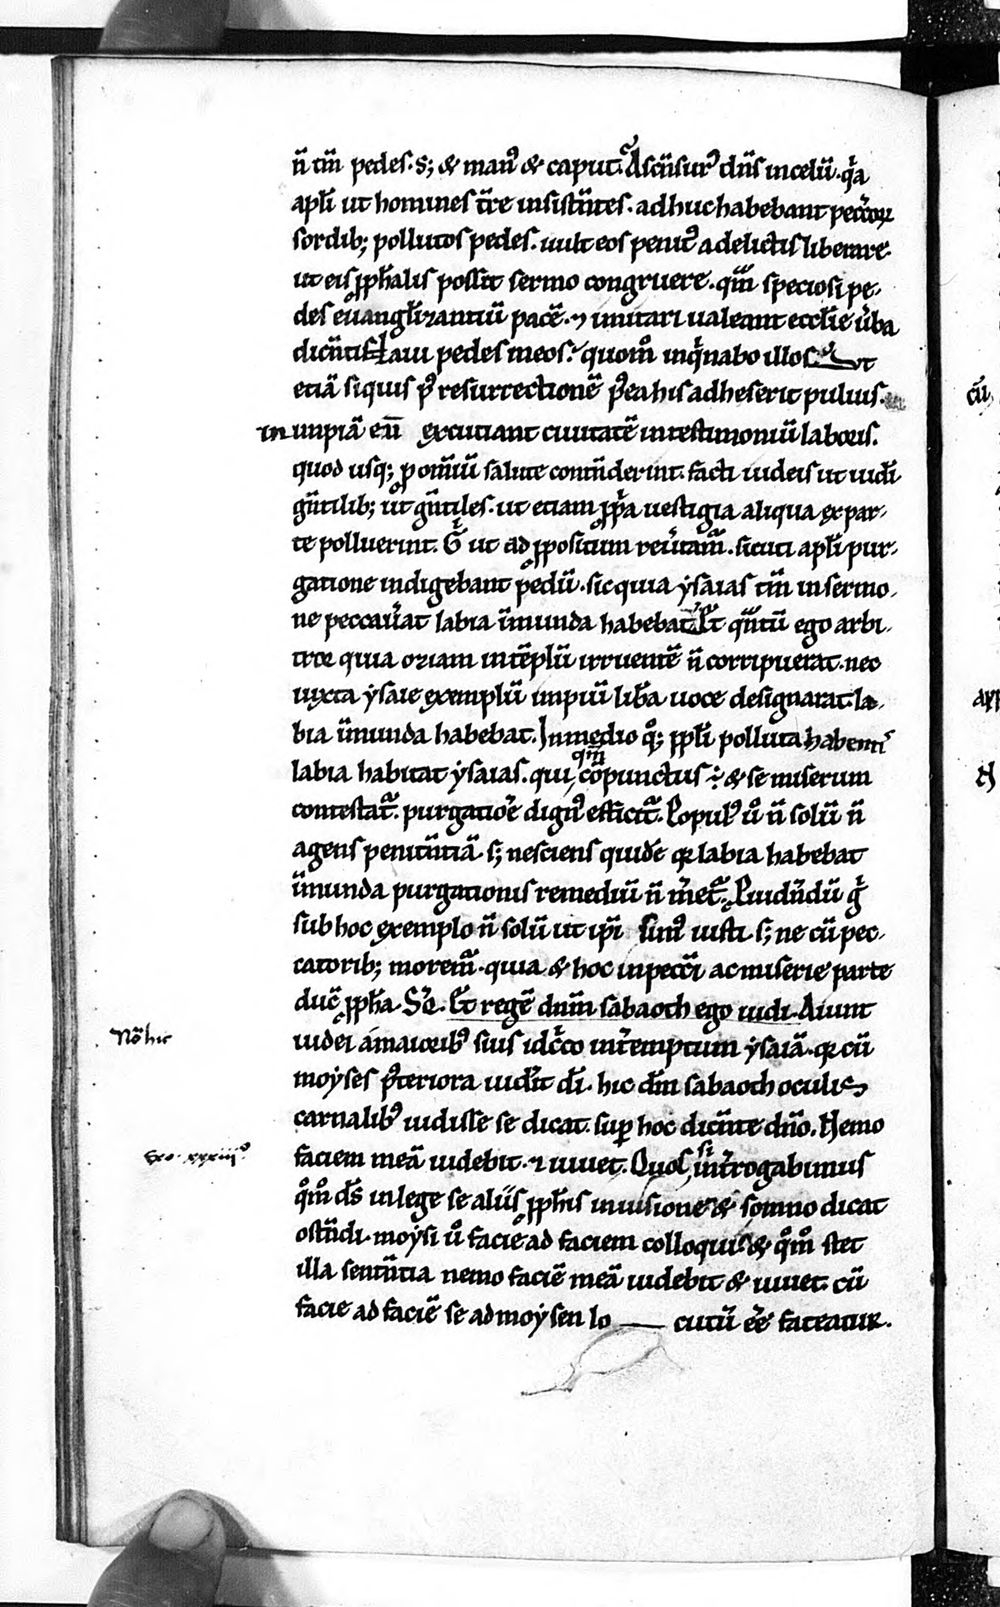 n̄ tm̄ pedes. s; & man⁹ & caput. Ascēsur⁹ dn̄s in celū. qͥa
apl̄i ut homines t̄re insistn̄tes. adhuc habebant pecc̄oꝝ
sordib; pollutos pedes. uult eos penit⁹ a delictis liberare.
ut eis ꝓph̄alis possit sermo congruere. qm̄ speciosi pe-
des euangl̄izantiū pacē. ⁊ imitari ualeant eccl̄ie ūba
dicn̄tis. Laui pedes meos. quom̊ inqͥnabo illos. Ut
etiā siquis p⁹ resurrectionē p⁹ea his adheserit puluis.
in impiā eū excutiant ciuitatē in testimoniū laboris.
quod usq; ꝓ om̄iū salute contn̄derint. facti iudeis ut iud̄i
gn̄tilib; ut gn̄tiles. ut etiam ꝓpͥa uestigia aliqua ex par-
te polluerint. Gͥ ut ad ꝓpositum reūtam̄. sicuti apl̄i pur-
gatione indigebant pedū. sic quia ẏsaias tm̄ in sermo-
ne peccau̓at labia īmunda habebat. Et qn̄tū ego arbi-
tror quia oziam in tēplū irruentē n̄ corripuerat. nec
iuxta ẏsaie exemplū impiū lib̄a uoce designarat. la-
bia īmunda habebat. In medio q̊; ppl̄i polluta habenti⁹
labia habitat ẏsaias. qui qm̄ cōpunctus ÷ & se miserum
contestat̄. purgatiōe dign⁹ efficit̄. Popul⁹ ů n̄ solū n̄
agens penitn̄tiā. s; nesciens quidē qꝫ labia habebat
īmunda purgationis remediū n̄ m̄et̄. Prouidn̄dū gͥ
sub hoc exemplo n̄ solū ut ip̄i sim⁹ iusti. s; ne cū pec-
catorib; morem̄. quia & hoc in pecc̄i ac miserie parte
duc̄ ꝓph̄a. Sꝫ. Et regē dnm̄ sabaoth ego uidi. Aiunt
Nōhic
iudei a maiorib⁹ suis idcͥco int̄emptum ẏsaiā. qꝫ cū
moẏses p⁹teriora uid̓it dī. hic dm̄ sabaoth oculis
carnalib⁹ uidisse se dicat. suꝑ hoc dicn̄te dn̄o. Nemo
exo. xxxiii⁰
faciem meā uidebit. ⁊ uiuet. Quos si int̄rogabimus
qͦm̊ ds̄ in lege se aliis ꝓph̄is in uisione & somno dicat
ostn̄di. moẏsi ů facie ad faciem colloqui. & qͦm̊ stet
illa sentn̄tia nemo faciē meā uidebit & uiuet. cū
facie ad faciē se ad moẏsen lo cutū eē fateatur.